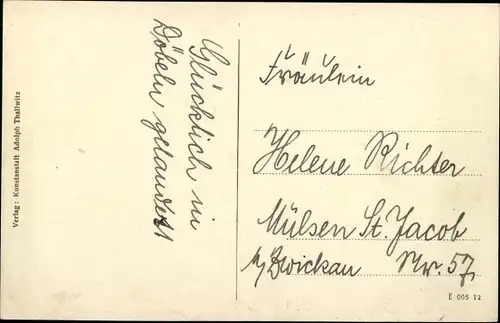 Glücklich in
Döbeln gelandet
Verlag: Kunstanstalt Adolph Thallwitz
Fräulein
Helene Richter
Mülsen St. Jacob
b/ Zwickau Nr. 57.
E 005 12